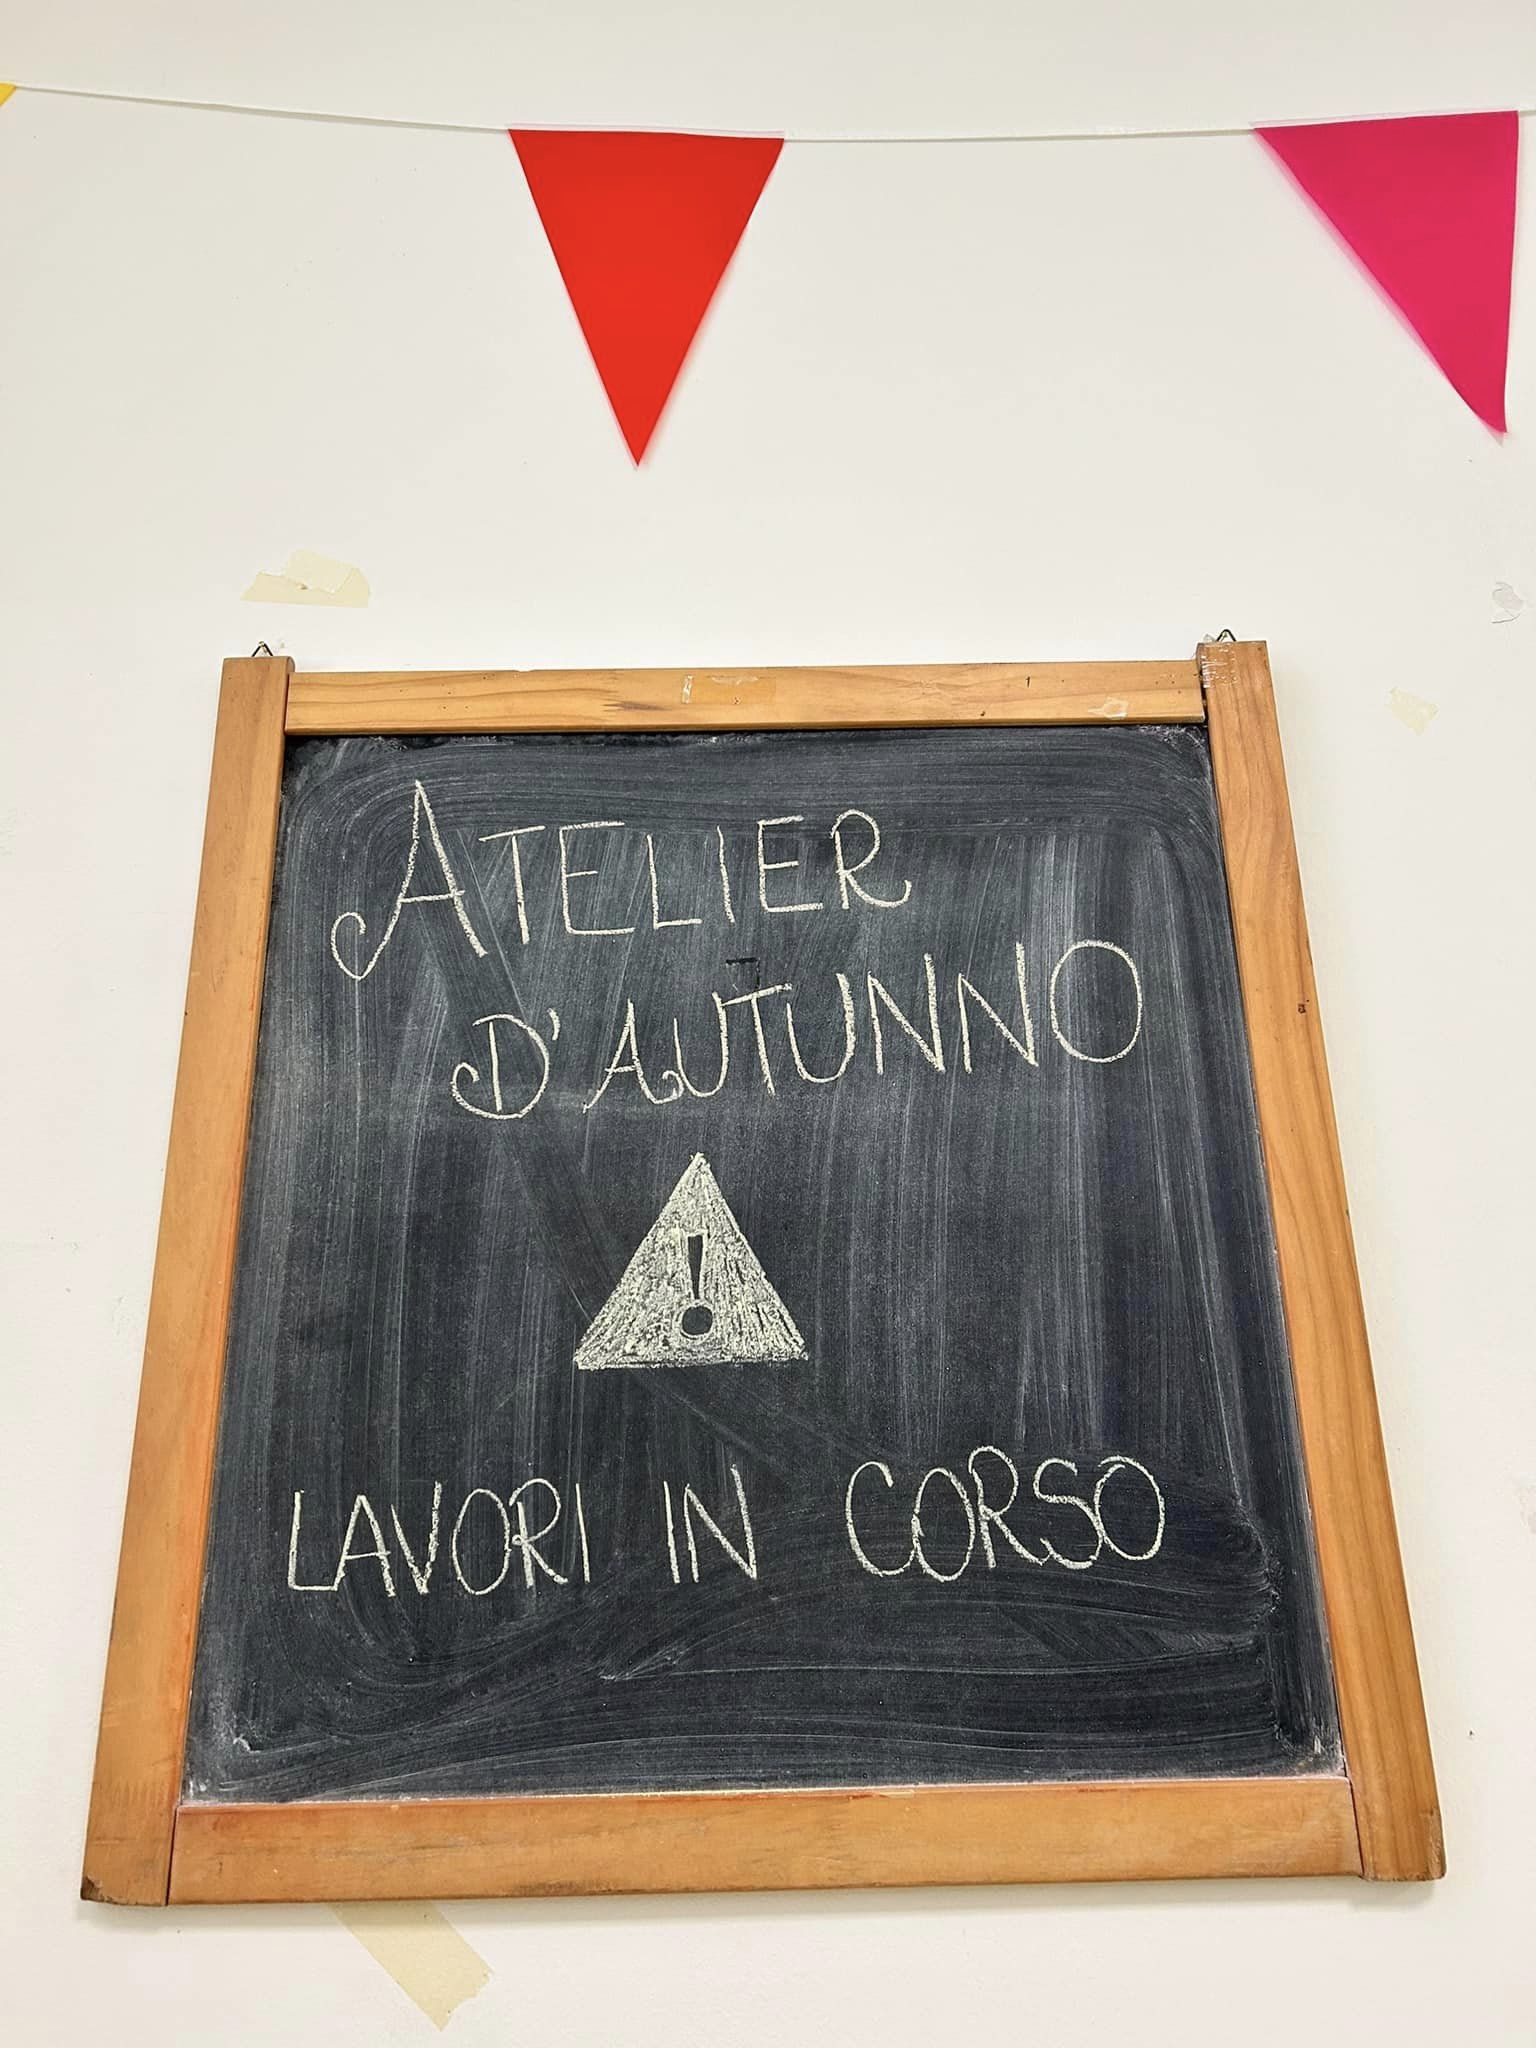 ATELIER
D'AUTUNNO
!
LAVORI IN CORSO